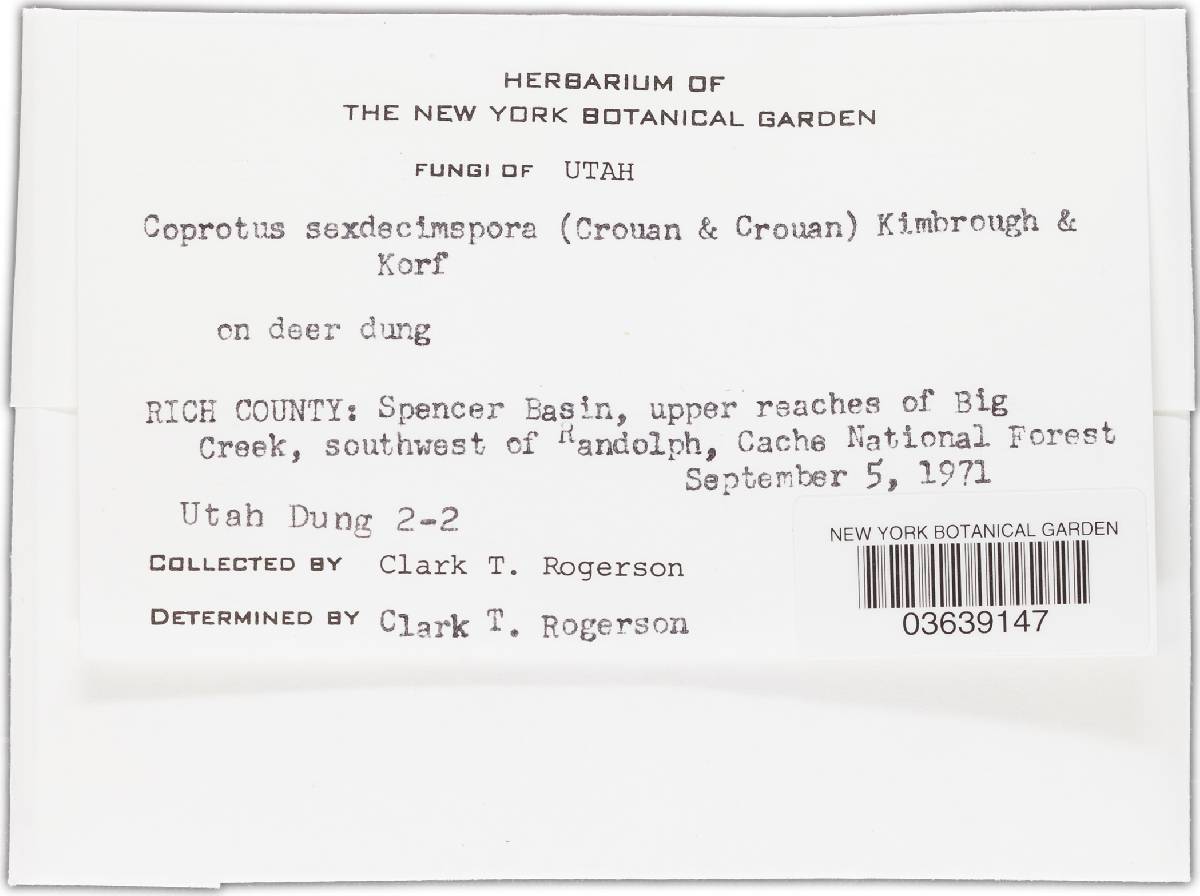 HERBARIUM OF
THE NEW YORK BOTANICAL GARDEN
FUNGI OF UTAH
Coprotus sexdecimspora (Crouan & Crouan) Kimbrough &
Korf
on deer dung
RICH COUNTY: Spencer Basin, upper reaches of Big
Creek, southwest of Randolph, Cache National Forest
September 5, 1971
Utah Dung 2-2
COLLECTED BY Clark T. Rogerson
DETERMINED BY Clark T. Rogerson
NEW YORK BOTANICAL GARDEN
03639147